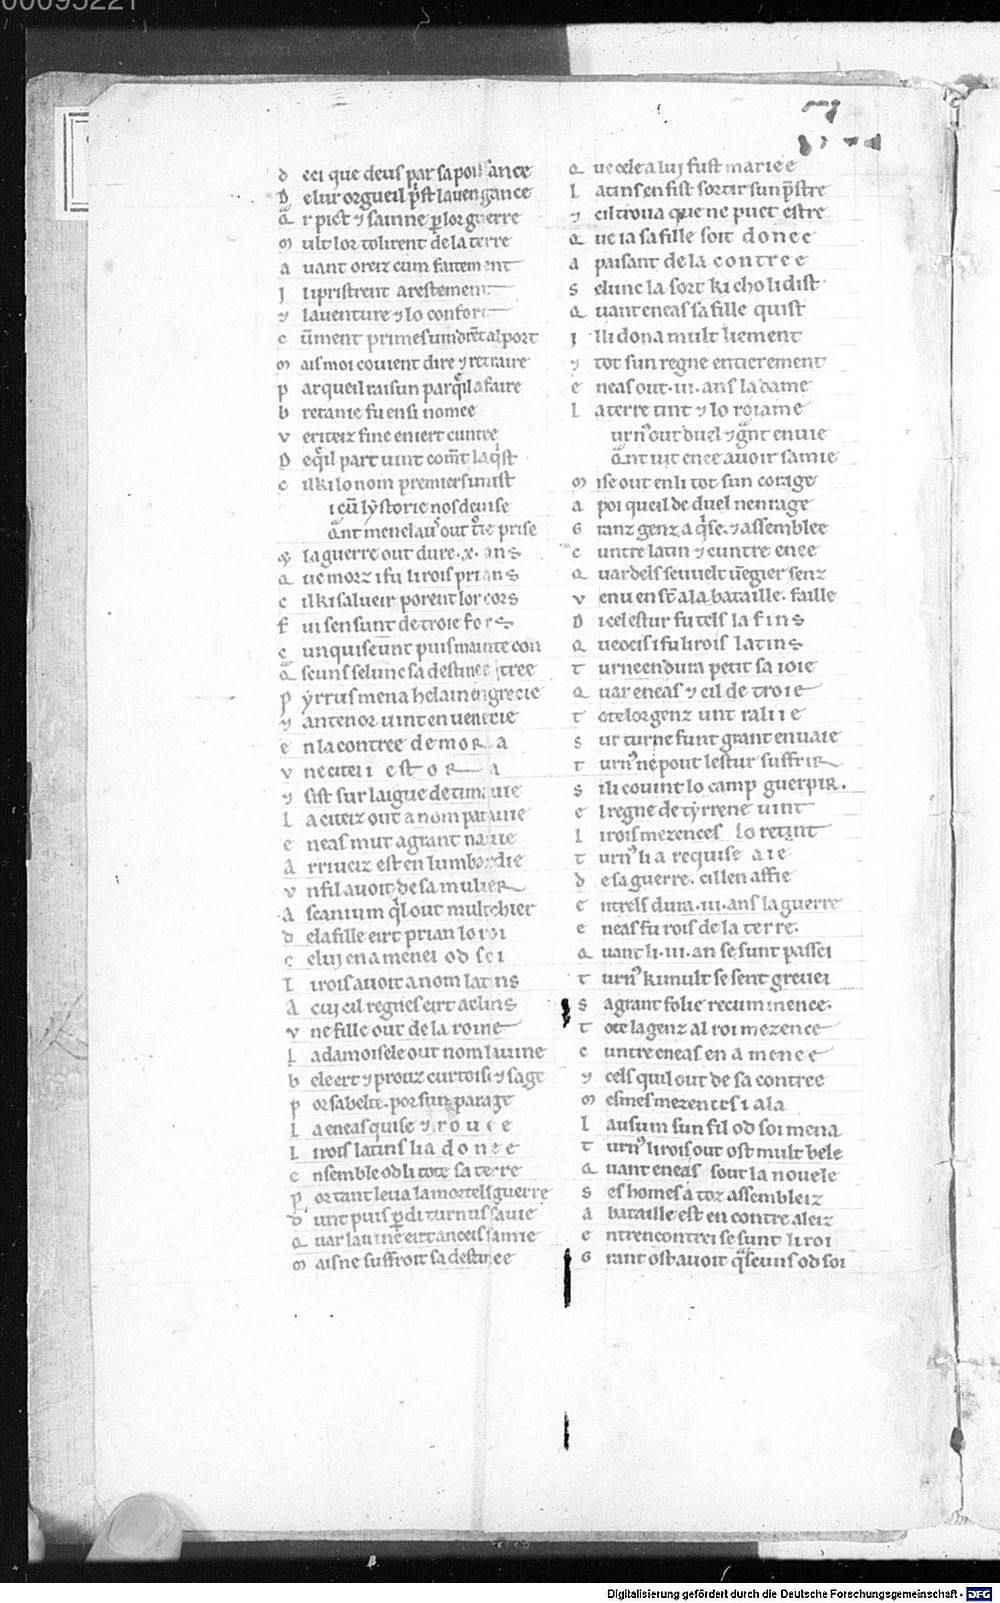 00095221
d eci que deus par sa poissance
D e lur orgueil pͥst la uengance
Qͣr pict ⁊ sainne ꝑ lor guerre
m ult lor tolirent de la terre
a uant oreiz cum faitement
J l i pristrent arestement
⁊ l auenture ⁊ lo confort
c ūment primes uindrēt al port
m ais moi couient dire ⁊ retraire
p ar queil raisun par qͥl a faire
b retanie fu ensi nomee
v eriteiz fine en iert cuntee
D e qͥl part uint com̄t la qͥst
c il ki lo nom premiers i mist
i cū lystorie nos deuise
qͣnt menelaus out troie prise
⁊ la guerre out dure .x. ans
Q ue morz i fu li rois prians
c il ki salueir porent lor cors
f ui sen sunt de troie fors
c unquis eunt puis mainte con
Qͣ scuns selunc sa destinee tree
p yrrus mena helain en grecie
⁊ antenor uint en uenecie
e n la contree de moria
v ne citei i estoria
⁊ sist sur laigue de timauie
l a citeiz out a nom patauie
e neas mut a grant nauie
A rriueiz est en lumbardie
v n fil auoit de sa mulier
A scanium qͥl out mult chier
d e la fille eirt prian lo roi
c elui en a menei od soi
L i rois auoit a nom latins
A cui cil regnes eirt aclins
v ne fille out de la roine
L a damoisele out nom lauine
b ele ert ⁊ prouz curtoise ⁊ sage
p or sa belte. por sun parage
L a eneas quise ⁊ rouee
L i rois latins li a donee
e nsemble od li tote sa terre
p or tant leua la mortels guerre
d unt puis ꝑdi turnus sa uie
Q uar lauine eirt anceis samie
m ais ne suffroit sa destinee
Q ue cele a lui fust mariee
L atins en fist sortir sun pͥstre
⁊ cil troua que ne puet estre
Q ue ia sa fille soit donee
a paisant de la contree
s elunc la sort ki cho li dist
Q uant eneas sa fille quist
J l li dona mult liement
⁊ tot sun regne entierement
e neas out .iii. ans la dame
L a terre tint ⁊ lo roiame
urn᾽ out duel ⁊ gͣnt enuie
Qͣnt uit enee auoir samie
m ise out en li tot sun corage
a poi queil de duel nenrage
G ranz genz a qͥse. ⁊ assemblee
c untre latin ⁊ cuntre enee
Q uar dels se uuelt uēgier senz
v enu en sūt a la bataille. faille
D icel estur fu tels la fins
Q ue ocis i fu li rois latins
T urne en dura petit sa ioie
Q uar eneas ⁊ cil de troie
T ote lor genz unt raliie
s ur turne funt grant enuaie
t urn᾽ ne pout lestur suffrir
S i li couint lo camp guerpir.
e l regne de tyrrene uint
l i rois mezences lo retint
t urn᾽ li a requise aie
d e sa guerre. cil len affie
e ntrels dura .iii. ans la guerre
e neas fu rois de la terre.
Q uant li .iii. an se sunt passei
T urn᾽ ki mult se sent greuei
S a grant folie recuminence.
T ote la genz al roi mezence
c untre eneas en a menee
⁊ cels quil out de sa contree
m esmes mezentes i ala
l ausum sun fil od soi mena
t urn᾽ li rois out ost mult bele
Q uant eneas sout la nouele
S es homes a toz assembleiz
a bataille est en contre aleiz
e ntrencontrei se sunt li roi
G rant ost auoit qͣscuns od soi
Digitalisierung gefördert durch die Deutsche Forschungsgemeinschaft - DFG